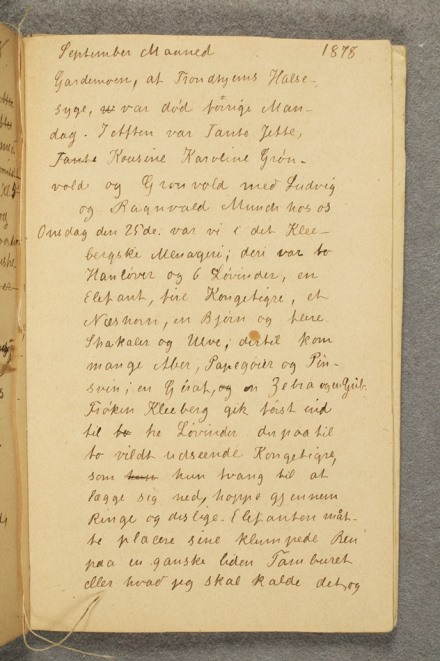 September Maaned 1878
Gardemoen, at Trondhjems Halse-
syge, var død forrige Man-
dag. I efften var Tante Jette,
Tante Kousine Karoline Grøn-
vold og Grønvold med Ludvig
og Ragnvald Munch hos os
Onsdag den 25de. var vi i det Klee-
bergske Menageri; deri var to
Hanløver og 6 Løvinder, en
Elefant, fire Kongetigre, et
Næshorn, en Bjørn og flere
Shakaler og Ulve; dertil kom
mange Aber, Papegøier og Pin-
svin; en Gjeat, og en Zebra og en Grib.
Frøken Kleeberg gik først ind
til to tre Løvinder derpaa til
to vildt udseende Kongetigre,
som hun tvang til at
lægge sig ned, hoppe gjennem
Ringe og deslige. Elefanten måt-
te placere sine klumpede Ben
paa en ganske liden Tamburet
eller hvad jeg skal kalde det, og